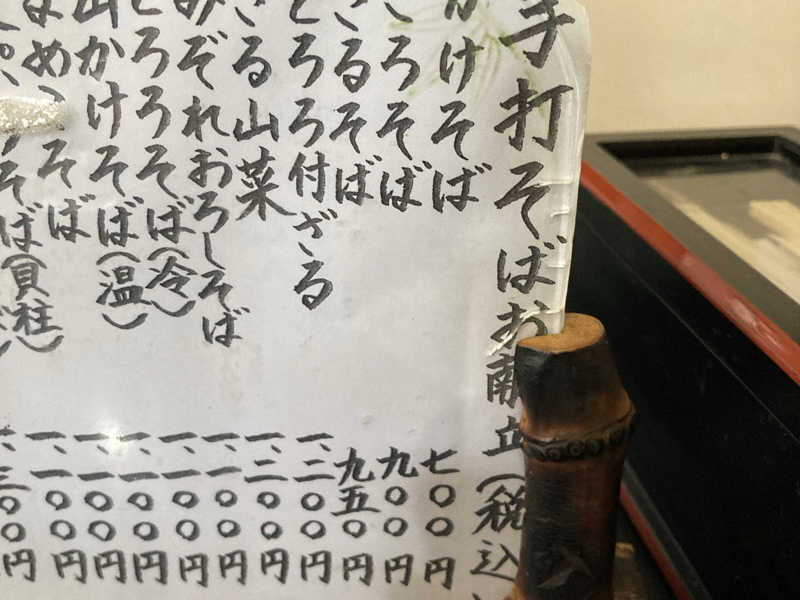 手打そばお献立(税込
かけそば 七〇〇円
ころそば 九〇〇円
ざるそば 九五〇円
とろろ付ざる 一、二〇〇円
ざる山菜 一、二〇〇円
みぞれおろしそば 一、一〇〇円
とろろそば(冷) 一、一〇〇円
山かけそば(温) 一、一〇〇円
そば 一、一〇〇円
そば(貝柱) 一、一〇〇円
一、三〇〇円